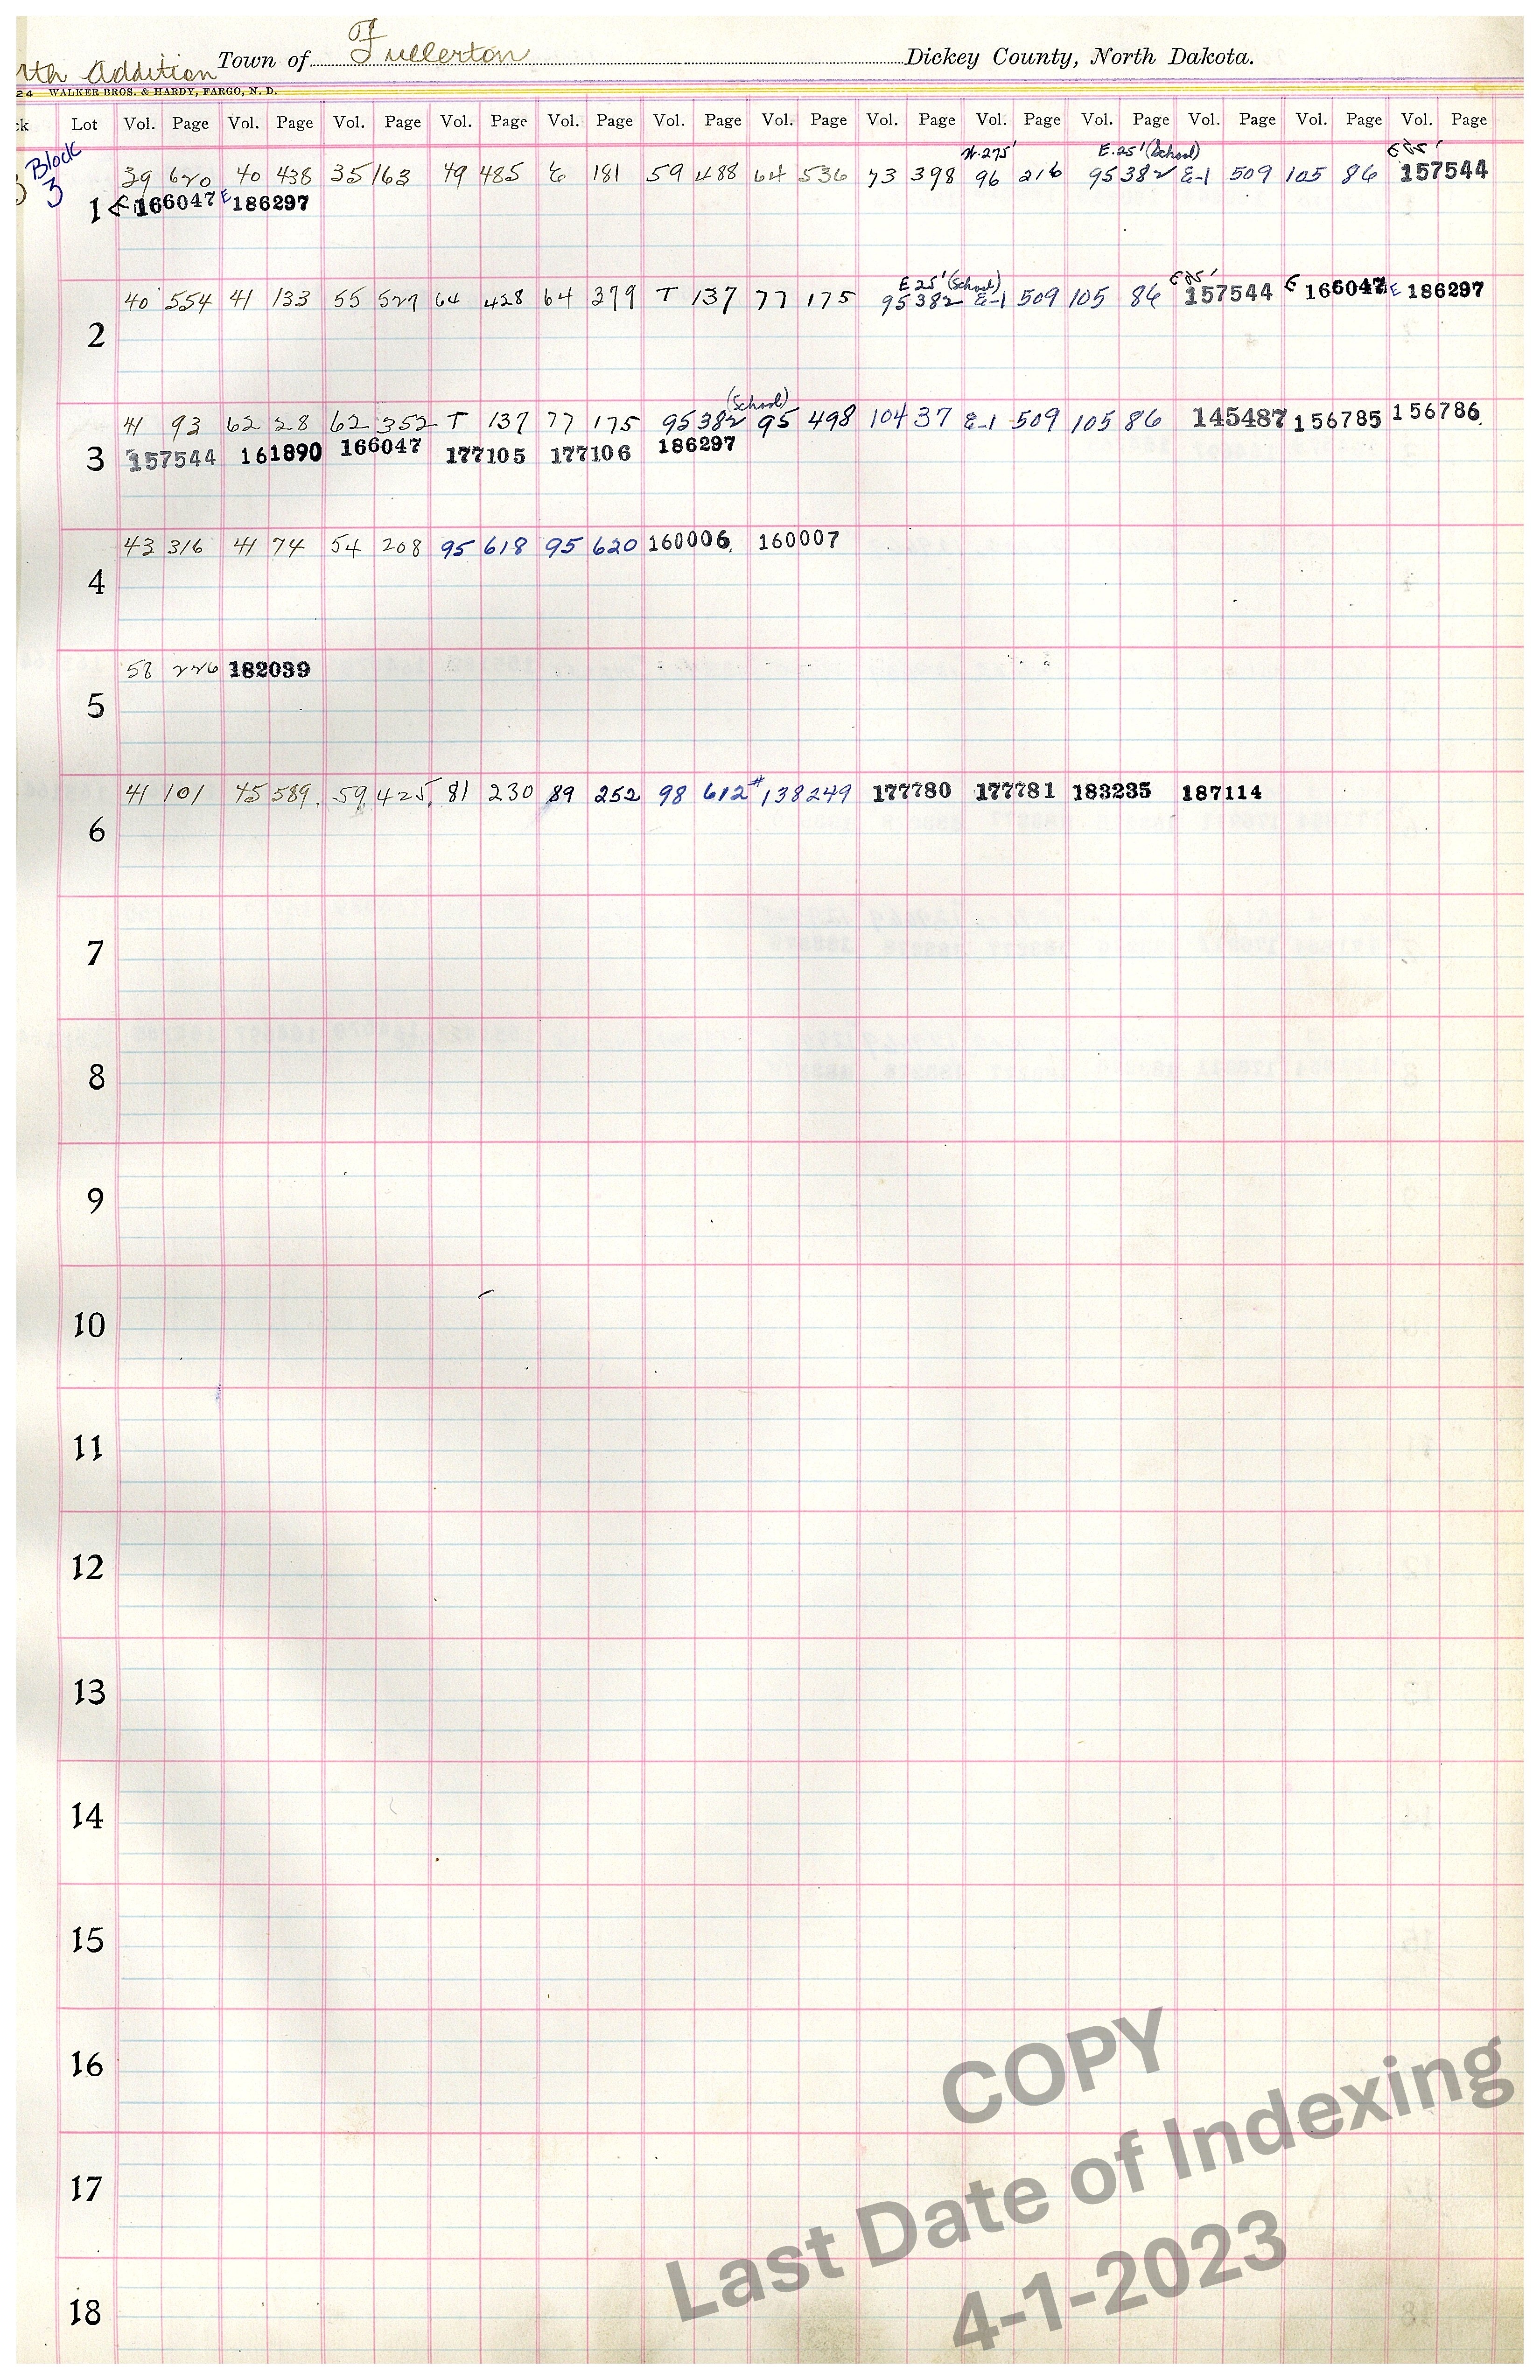 rth Addition Town of Fullerton Dickey County, North Dakota.
24 WALKER BROS. & HARDY, FARGO, N. D.
ck Lot Vol. Page Vol. Page Vol. Page Vol. Page Vol. Page Vol. Page Vol. Page Vol. Page Vol. Page Vol. Page Vol. Page Vol. Page Vol. Page
W.275' E.25' (School) E 25'
Block 39 620 40 438 35 163 49 485 E 181 59 488 64 536 73 398 96 216 95 382 E-1 509 105 86 157544
3 1 E 166047 E 186297
E 25' (School) E 25'
40 554 41 133 55 527 64 428 64 379 T 137 77 175 95 382 E-1 509 105 86 157544 E 166047 E 186297
2
(School)
41 93 62 28 62 352 T 137 77 175 95 382 95 498 104 37 E-1 509 105 86 145487 156785 156786
3 157544 161890 166047 177105 177106 186297
43 316 41 74 54 208 95 618 95 620 160006 160007
4
58 226 182039
5
41 101 45 589 59 425 81 230 89 252 98 612 #138249 177780 177781 183235 187114
6
7
8
9
10
11
12
13
14
15
16
17
18
COPY
Last Date of Indexing
4-1-2023